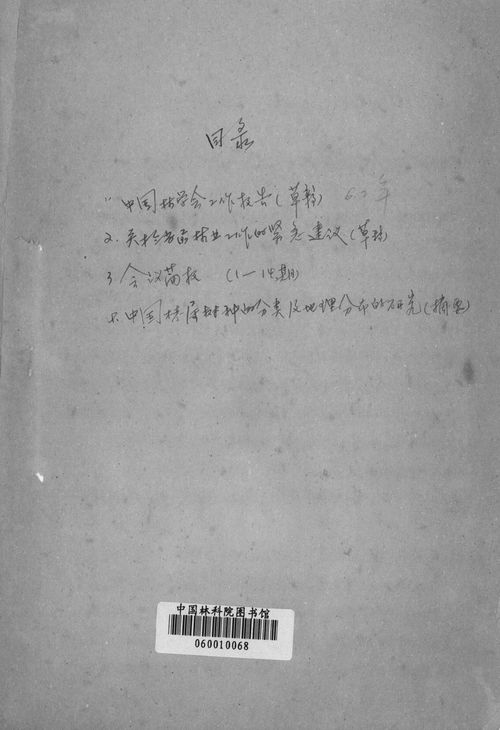 目录
1. 中国林学会工作报告(草稿) 62年
2. 关于当前林业工作的紧急建议(草稿)
3. 会议简报 (1—14期)
中国 属树种的分类及地理分布的研究(摘要)
中国林科院图书馆
060010068